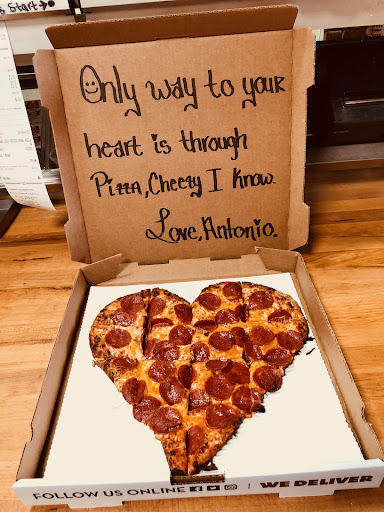 Start→
Only way to your
heart is through
Pizza, Cheezy I Know.
Love, Antonio.
FOLLOW US ONLINE
WE DELIVER